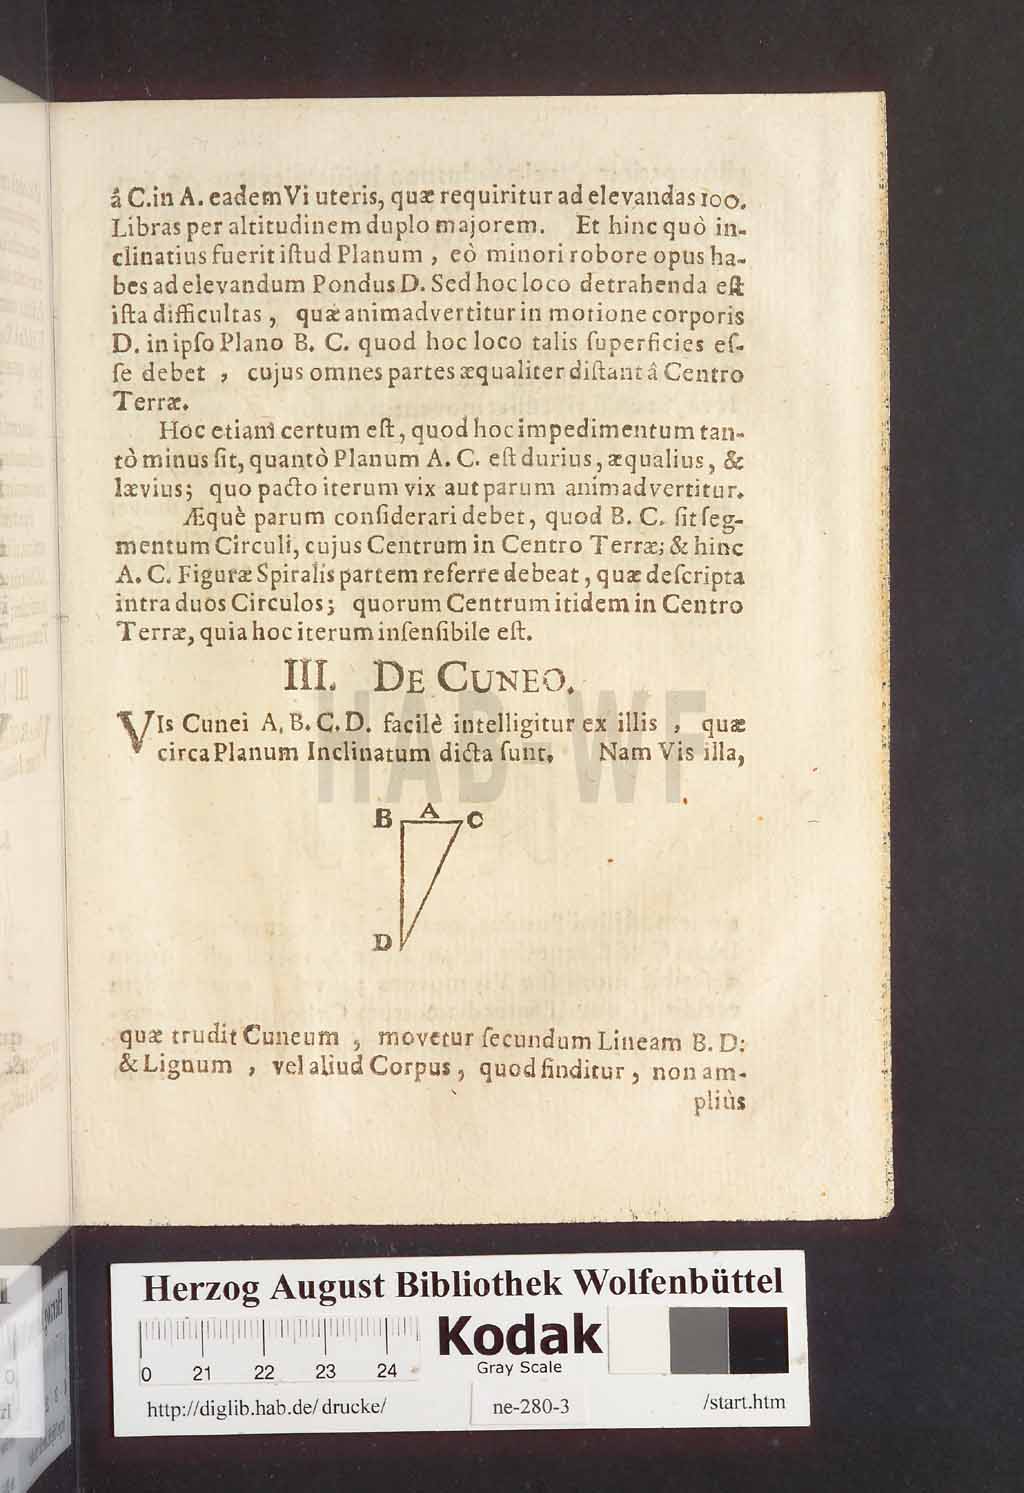 â C. in A. eadem Vi uteris, quæ requiritur ad elevandas 100.
Libras per altitudinem duplo majorem. Et hinc quò in-
clinatius fuerit iſtud Planum, eò minori robore opus ha-
bes ad elevandum Pondus D. Sed hoc loco detrahenda eſt
iſta difficultas, quæ animadvertitur in motione corporis
D. in ipſo Plano B. C. quod hoc loco talis ſuperficies eſ-
ſe debet, cujus omnes partes æqualiter diſtant â Centro
Terræ.
Hoc etiam certum eſt, quod hoc impedimentum tan-
tò minus ſit, quantò Planum A. C. eſt durius, æqualius, &
lævius; quo pacto iterum vix aut parum animadvertitur.
Æquè parum conſiderari debet, quod B. C. ſit ſeg-
mentum Circuli, cujus Centrum in Centro Terræ; & hinc
A. C. Figuræ Spiralis partem referre debeat, quæ deſcripta
intra duos Circulos; quorum Centrum itidem in Centro
Terræ, quia hoc iterum inſenſibile eſt.
III. DE CUNEO.
VIs Cunei A. B. C. D. facilè intelligitur ex illis, quæ
circa Planum Inclinatum dicta ſunt. Nam Vis illa,
HAB-WF
B A C
D
quæ trudit Cuneum, movetur ſecundum Lineam B. D:
& Lignum, vel aliud Corpus, quod finditur, non am-
pliùs
Herzog August Bibliothek Wolfenbüttel
Kodak
Gray Scale
0 21 22 23 24
http://diglib.hab.de/drucke/ ne-280-3 /start.htm